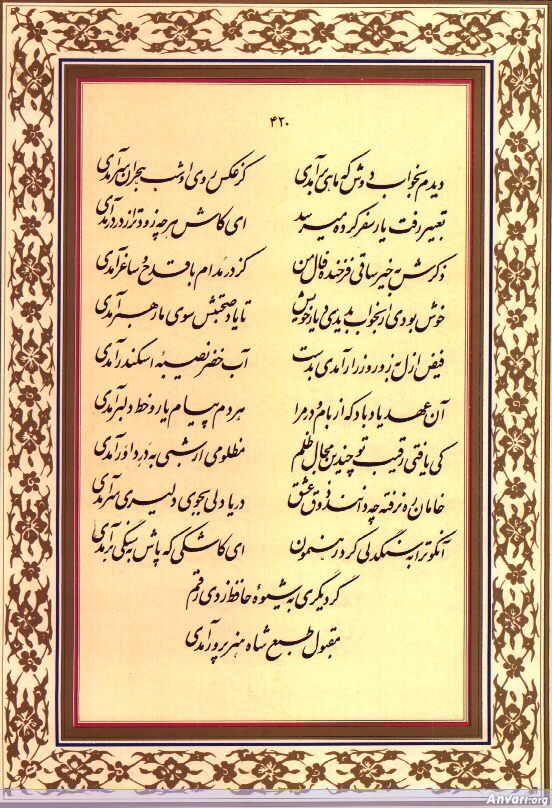 ۴۲۰
دیدم بخواب دوش که ماهی برآمدی کز عکس روی او شب هجران سرآمدی
تعبیر رفت یار سفر کرده میرسد ای کاش هر چه زودتر از در درآمدی
ذکرش به خیر ساقی فرخنده فال من کز در مدام با قدح و ساغر آمدی
خوش بودی ار بخواب بدیدی دیار خویش تا یاد صحبتش سوی ما رهبر آمدی
فیض ازل به زور و زر ار آمدی بدست آب خضر نصیبهٔ اسکندر آمدی
آن عهد یاد باد که از بام و در مرا هر دم پیام یار و خط دلبر آمدی
کی یافتی رقیب تو چندین مجال ظلم مظلومی ار شبی به در داور آمدی
خامان ره نرفته چه دانند ذوق عشق دریا دلی بجوی دلیری سرآمدی
آنکو ترا به سنگدلی کرد رهنمون ای کاشکی که پاش به سنگی برآمدی
گر دیگری به شیوهٔ حافظ زدی رقم
مقبول طبع شاه هنر پرور آمدی
Anvari.org